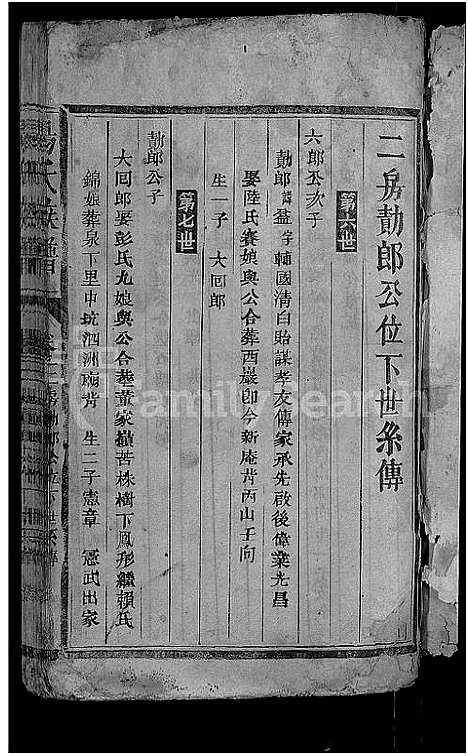 二房勣郎公位下世系傳
第六世
六郎公次子
勣郎諱益字輔國清白貽謀孝友傳家承先啟後偉業光昌
娶陸氏賽娘與公合葬西巖即今新庵背丙山壬向
生一子 大囘郎
第七世
勣郎公子
大囘郎娶彭氏九娘與公合葬董家嶺苦株樹下鳳形繼賴氏
錦娘葬泉下里中坑泗洲廟背 生二子憲章 憲武出家
氏族譜
FamilySearch